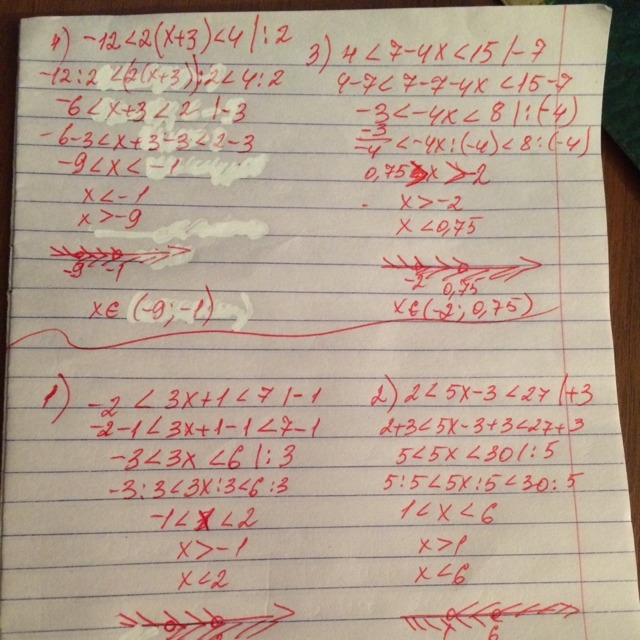 4) -12<2(x+3)<4 |:2
-12:2<(2(x+3)):2<4:2
-6<x+3<2 |-3
-6-3<x+3-3<2-3
-9<x<-1
x<-1
x>-9
-9 -1
x∈(-9;-1)
3) 4<7-4x<15 |-7
4-7<7-7-4x<15-7
-3<-4x<8 |:(-4)
-3/-4<-4x:(-4)<8:(-4)
0,75>x>-2
x>-2
x<0,75
-2 0,75
x∈(-2; 0,75)
1) -2<3x+1<7 |-1
-2-1<3x+1-1<7-1
-3<3x<6 |:3
-3:3<3x:3<6:3
-1<x<2
x>-1
x<2
2) 2<5x-3<27 |+3
2+3<5x-3+3<27+3
5<5x<30 |:5
5:5<5x:5<30:5
1<x<6
x>1
x<6
1 6